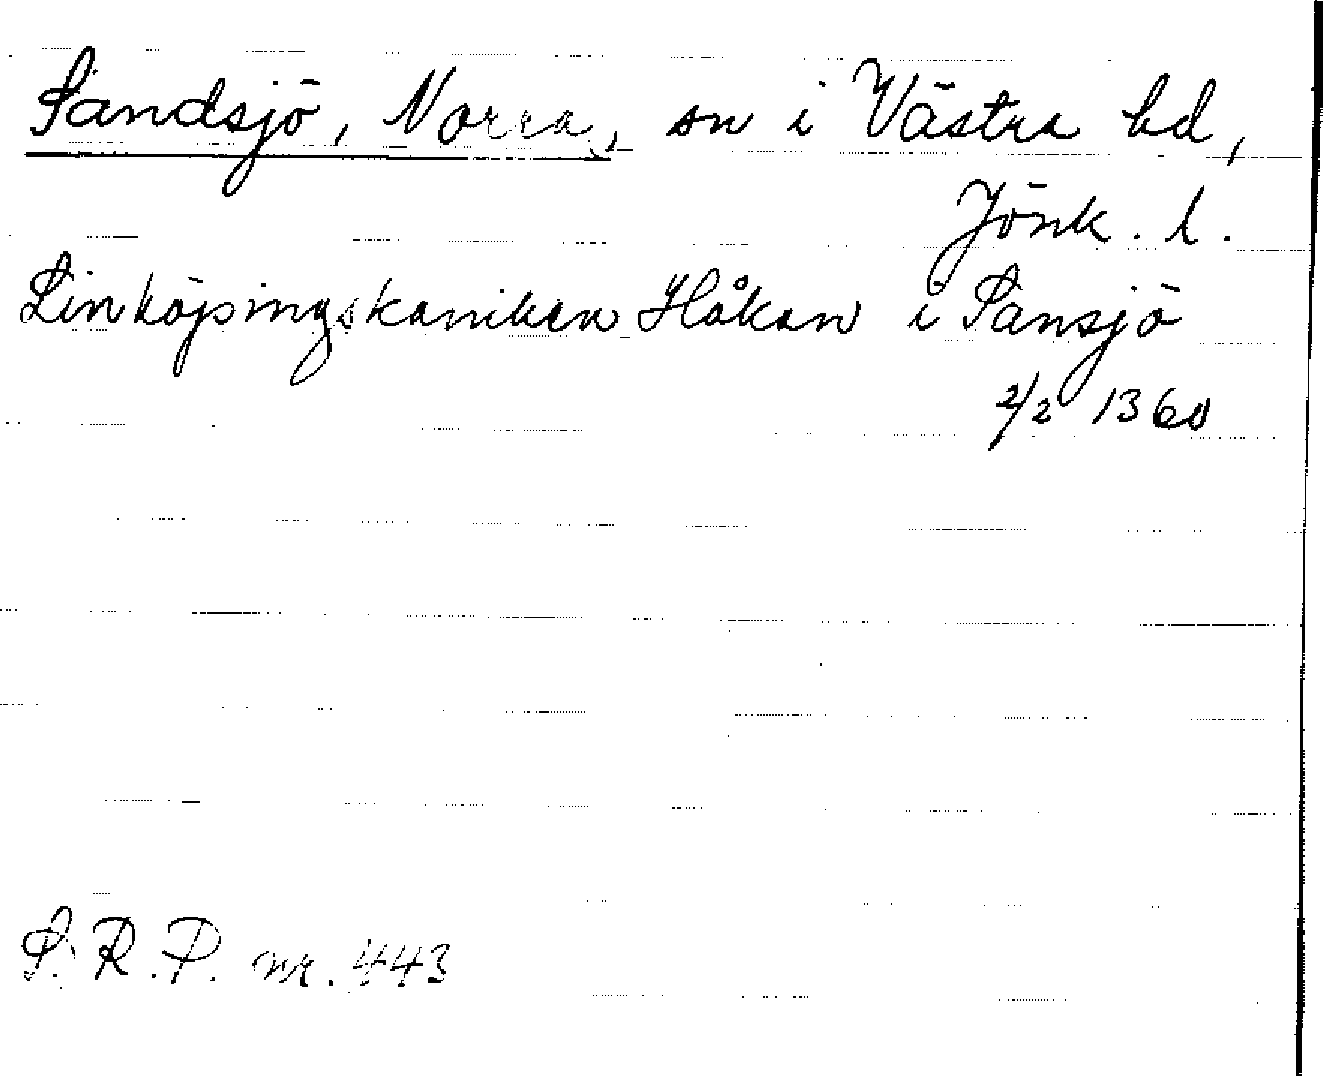 Sandsjö, Norra, sn i Västra hd,
Jönk. l.
Linköpingskaniken Håkan i Sansjö
2/2 1360
S.R.P. nr. 443